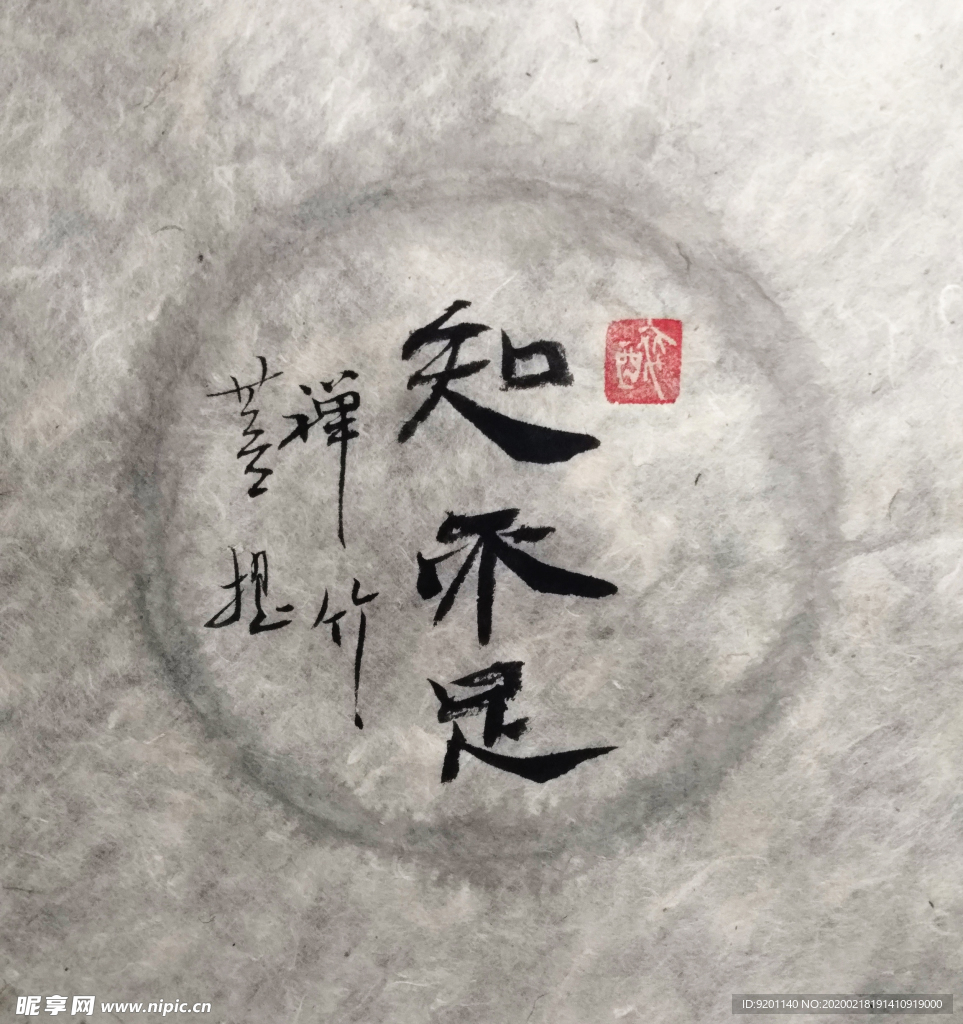 知不足
禅竹
菩提
昵享网 www.nipic.cn
ID:9201140 NO:20200218191410919000